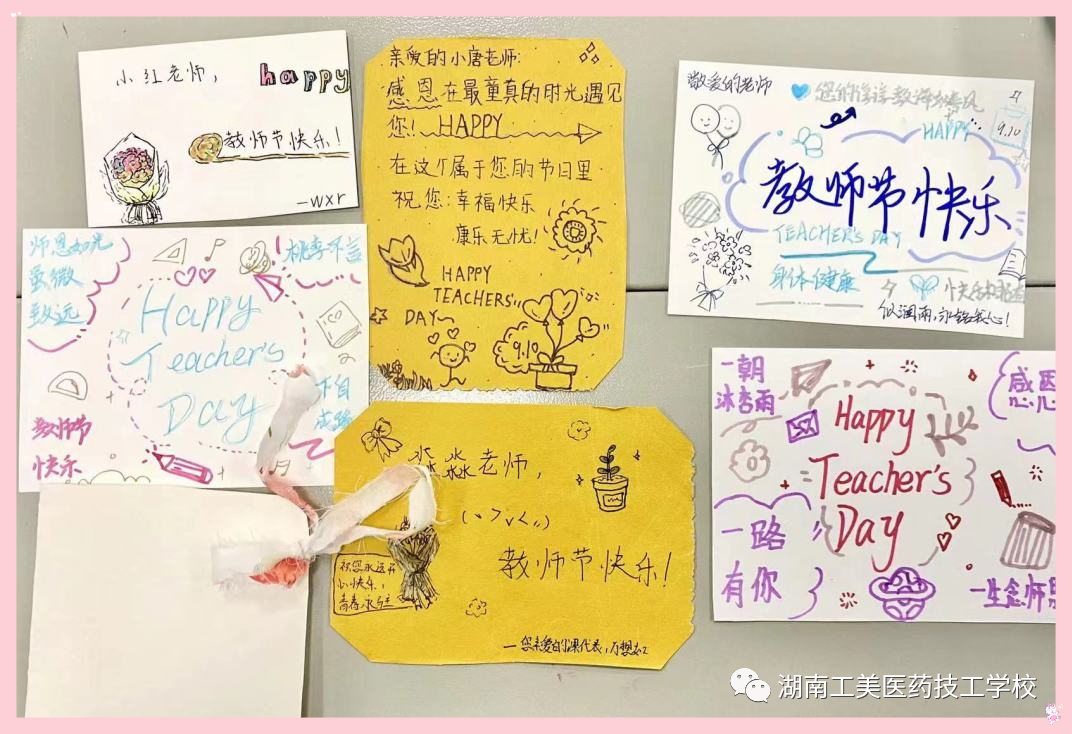 小红老师，
happy
教师节快乐！
—wxr
亲爱的小唐老师:
感恩在最童真的时光遇见
您！HAPPY
在这个属于您的节日里
祝您:幸福快乐
康乐无忧！
HAPPY
TEACHERS'
DAY~
9.10
敬爱的老师
您的谆谆教诲如春风
HAPPY
9.10
教师节快乐
TEACHER'S DAY
身体健康
似润雨，永铭我心！
师恩如光
虽微
致远
桃李不言
Happy
Teacher's
Day
教师节
快乐
不自
成蹊
淼淼老师，
教师节快乐！
祝您永远开
心快乐，
青春永驻
一您亲爱的课代表，万想
一朝
沐杏雨
感恩
Happy
Teacher's
Day
一路
有你
一生念师恩
湖南工美医药技工学校